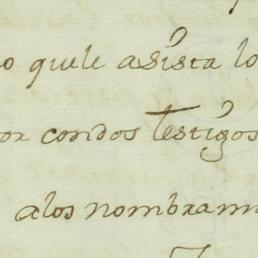 o quele asista lo
or condos testigos
alos nombram